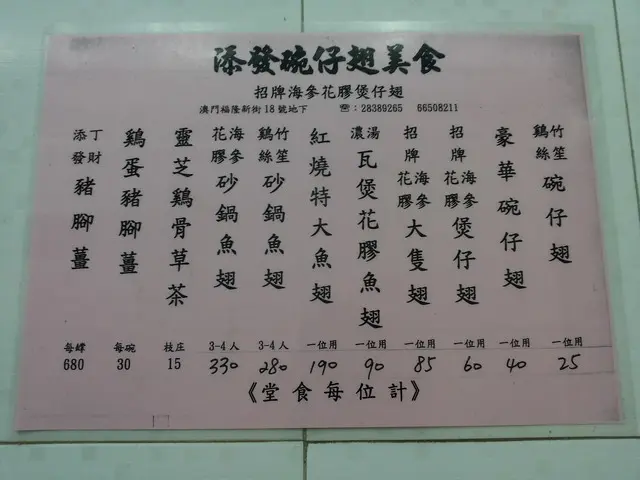 添發碗仔翅美食
招牌海參花膠煲仔翅
澳門福隆新街18號地下 ☎:28389265 66508211
竹笙鷄絲碗仔翅 一位用 25
豪華碗仔翅 一位用 40
招牌海參花膠煲仔翅 一位用 60
招牌海參花膠大隻翅 一位用 85
濃湯瓦煲花膠魚翅 一位用 90
紅燒特大魚翅 一位用 190
竹笙鷄絲砂鍋魚翅 3-4人 280
海參花膠砂鍋魚翅 3-4人 330
靈芝鷄骨草茶 枝庄 15
鷄蛋豬腳薑 每碗 30
添丁發財豬腳薑 680
《堂食每位計》